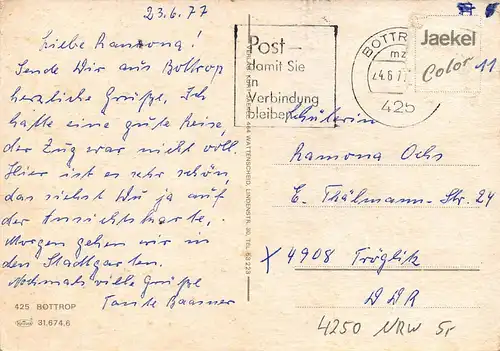 23.6.77
Liebe Ramona!
Sende Dir aus Bottrop
herzliche Grüße. Ich
hatte eine gute Reise,
der Zug war nicht voll.
Hier ist es sehr schön,
das siehst Du ja auf
der Ansichtskarte.
Morgen gehen wir in
den Stadtgarten.
Nochmals viele Grüße
Tante
425 BOTTROP
31.674.6
WATTENSCHEID, LINDENSTR.
Post –
damit Sie
in
Verbindung
bleiben
BOTTROP
mz
425
Jaekel
Color
11
Schülerin
Ramona Ochs
E. Thälmann-Str. 24
4908 Tröglitz
DDR
4250 NRW 5,-